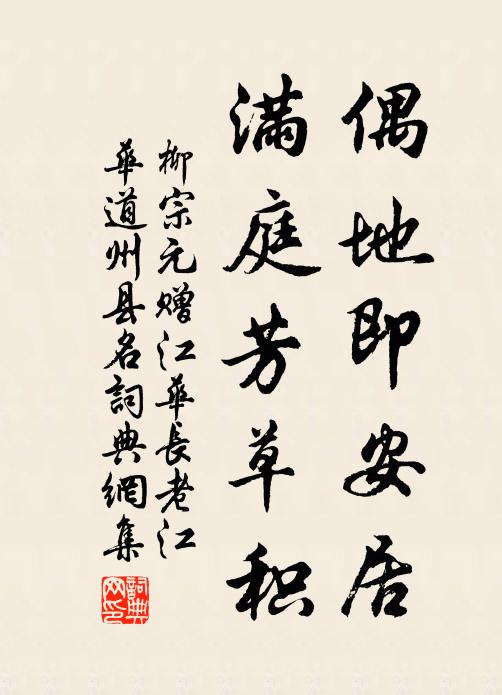 偶地即安居
满庭芳草积
柳宗元赠江華長老江
華道州县名詞典網集
詞典网印